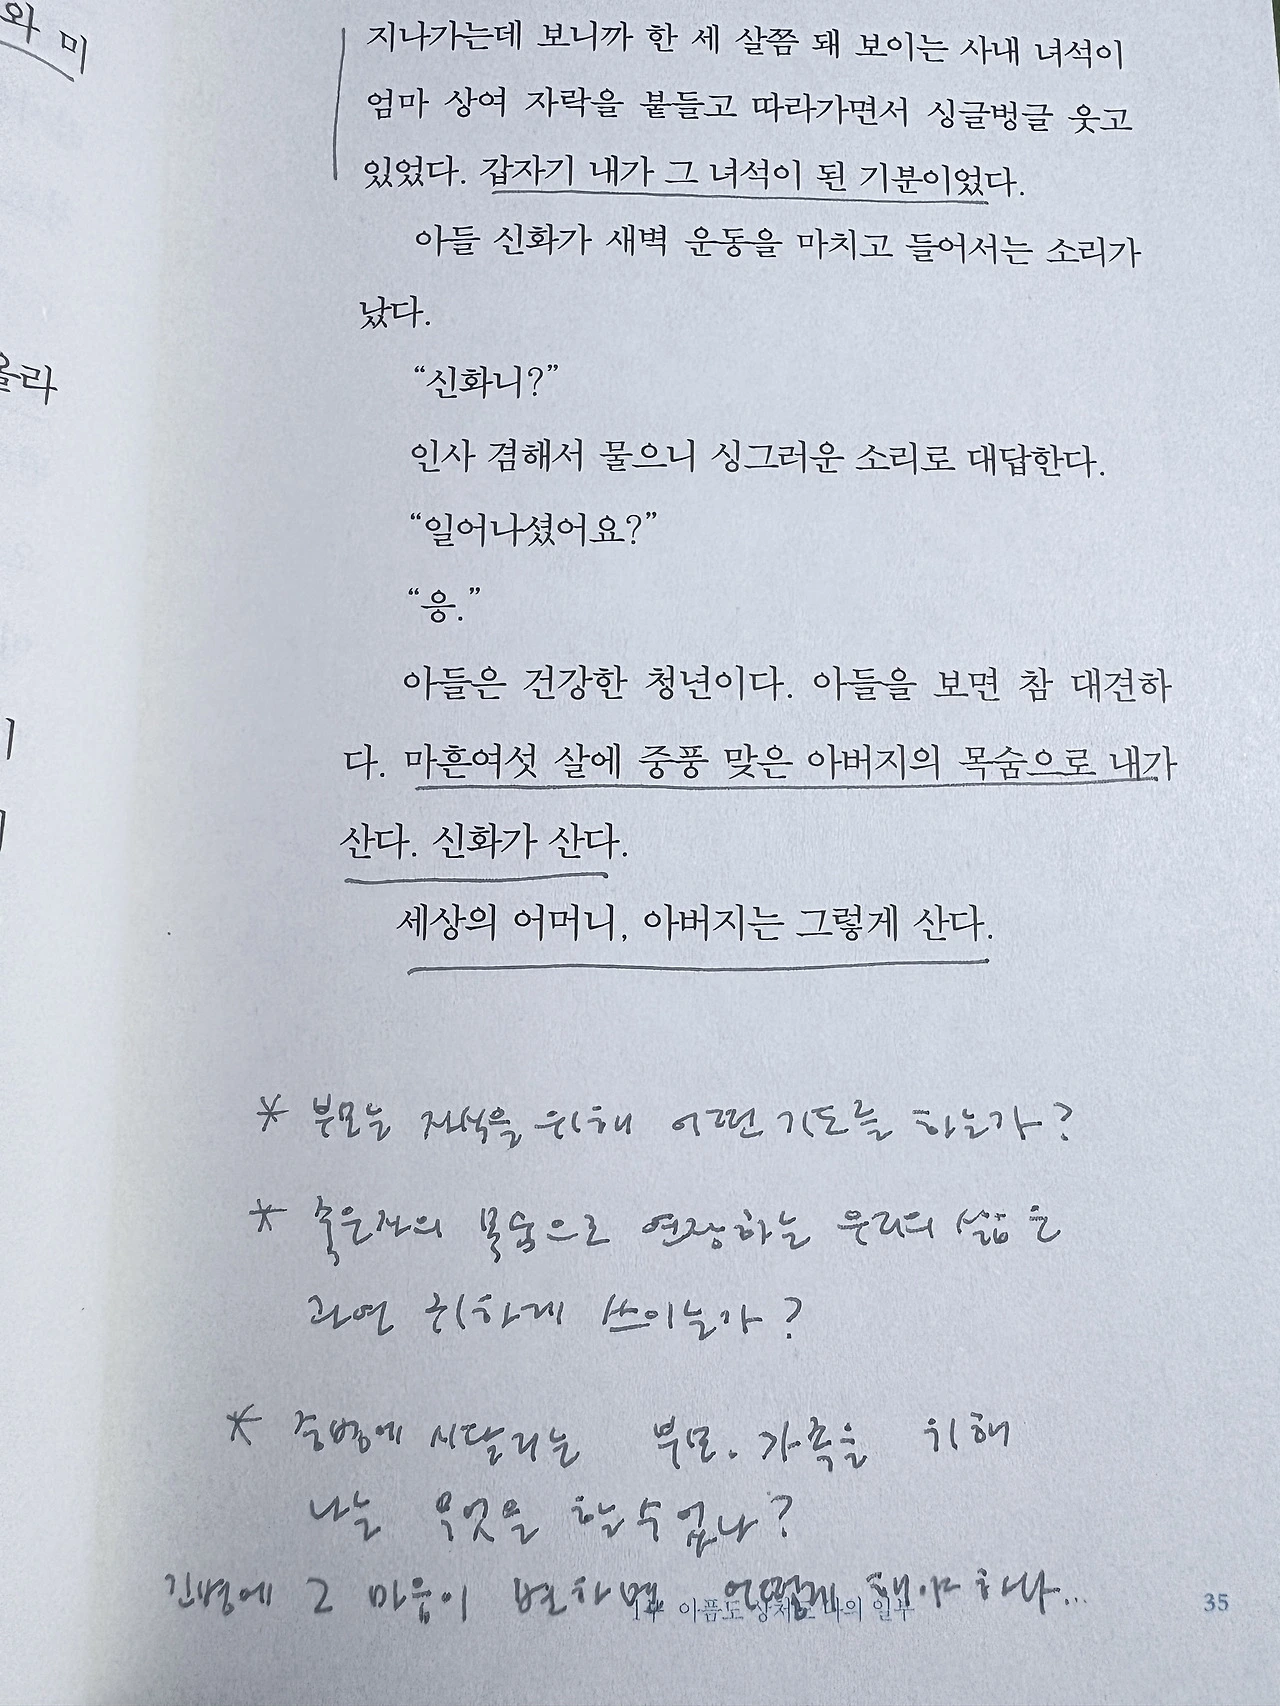 와 미
올라
지나가는데 보니까 한 세 살쯤 돼 보이는 사내 녀석이
엄마 상여 자락을 붙들고 따라가면서 싱글벙글 웃고
있었다. 갑자기 내가 그 녀석이 된 기분이었다.
아들 신화가 새벽 운동을 마치고 들어서는 소리가
났다.
“신화니?”
인사 겸해서 물으니 싱그러운 소리로 대답한다.
“일어나셨어요?”
“응.”
아들은 건강한 청년이다. 아들을 보면 참 대견하
다. 마흔여섯 살에 중풍 맞은 아버지의 목숨으로 내가
산다. 신화가 산다.
세상의 어머니, 아버지는 그렇게 산다.
* 부모는 자식을 위해 어떤 기도를 하는가?
* 죽은자의 목숨으로 연장하는 우리의 삶은
과연 귀하게 쓰이는가?
* 중병에 시달리는 부모. 가족을 위해
나는 무엇을 할 수 있나?
긴병에 그 마음이 변하면 어떻게 해야하나...
1부 아픔도 상처도 나의 일부
35